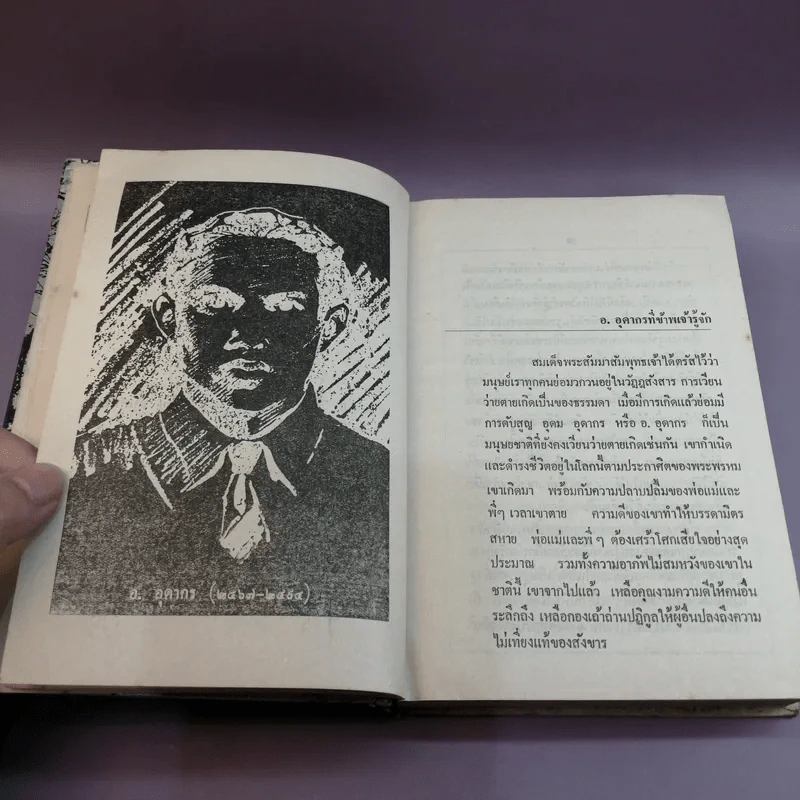 อ. อุดากร (๒๔๖๗-๒๔๙๔)
อ. อุดากรที่ข้าพเจ้ารู้จัก
สมเด็จพระสัมมาสัมพุทธเจ้าได้ตรัสไว้ว่า
มนุษย์เราทุกคนย่อมวกวนอยู่ในวัฏฏสังสาร การเวียน
ว่ายตายเกิดเป็นของธรรมดา เมื่อมีการเกิดแล้วย่อมมี
การดับสูญ อุดม อุดากร หรือ อ. อุดากร ก็เป็น
มนุษยชาติที่ยังคงเวียนว่ายตายเกิดเช่นกัน เขากำเนิด
และดำรงชีวิตอยู่ในโลกนี้ตามประกาศิตของพระพรหม
เขาเกิดมา พร้อมกับความปลาบปลื้มของพ่อแม่และ
พี่ๆ เวลาเขาตาย ความดีของเขาทำให้บรรดามิตร
สหาย พ่อแม่และพี่ ๆ ต้องเศร้าโศกเสียใจอย่างสุด
ประมาณ รวมทั้งความอาภัพไม่สมหวังของเขาใน
ชาตินี้ เขาจากไปแล้ว เหลือคุณงามความดีให้คนอื่น
ระลึกถึง เหลือกองเถ้าถ่านปฏิกูลให้ผู้อื่นปลงถึงความ
ไม่เที่ยงแท้ของสังขาร